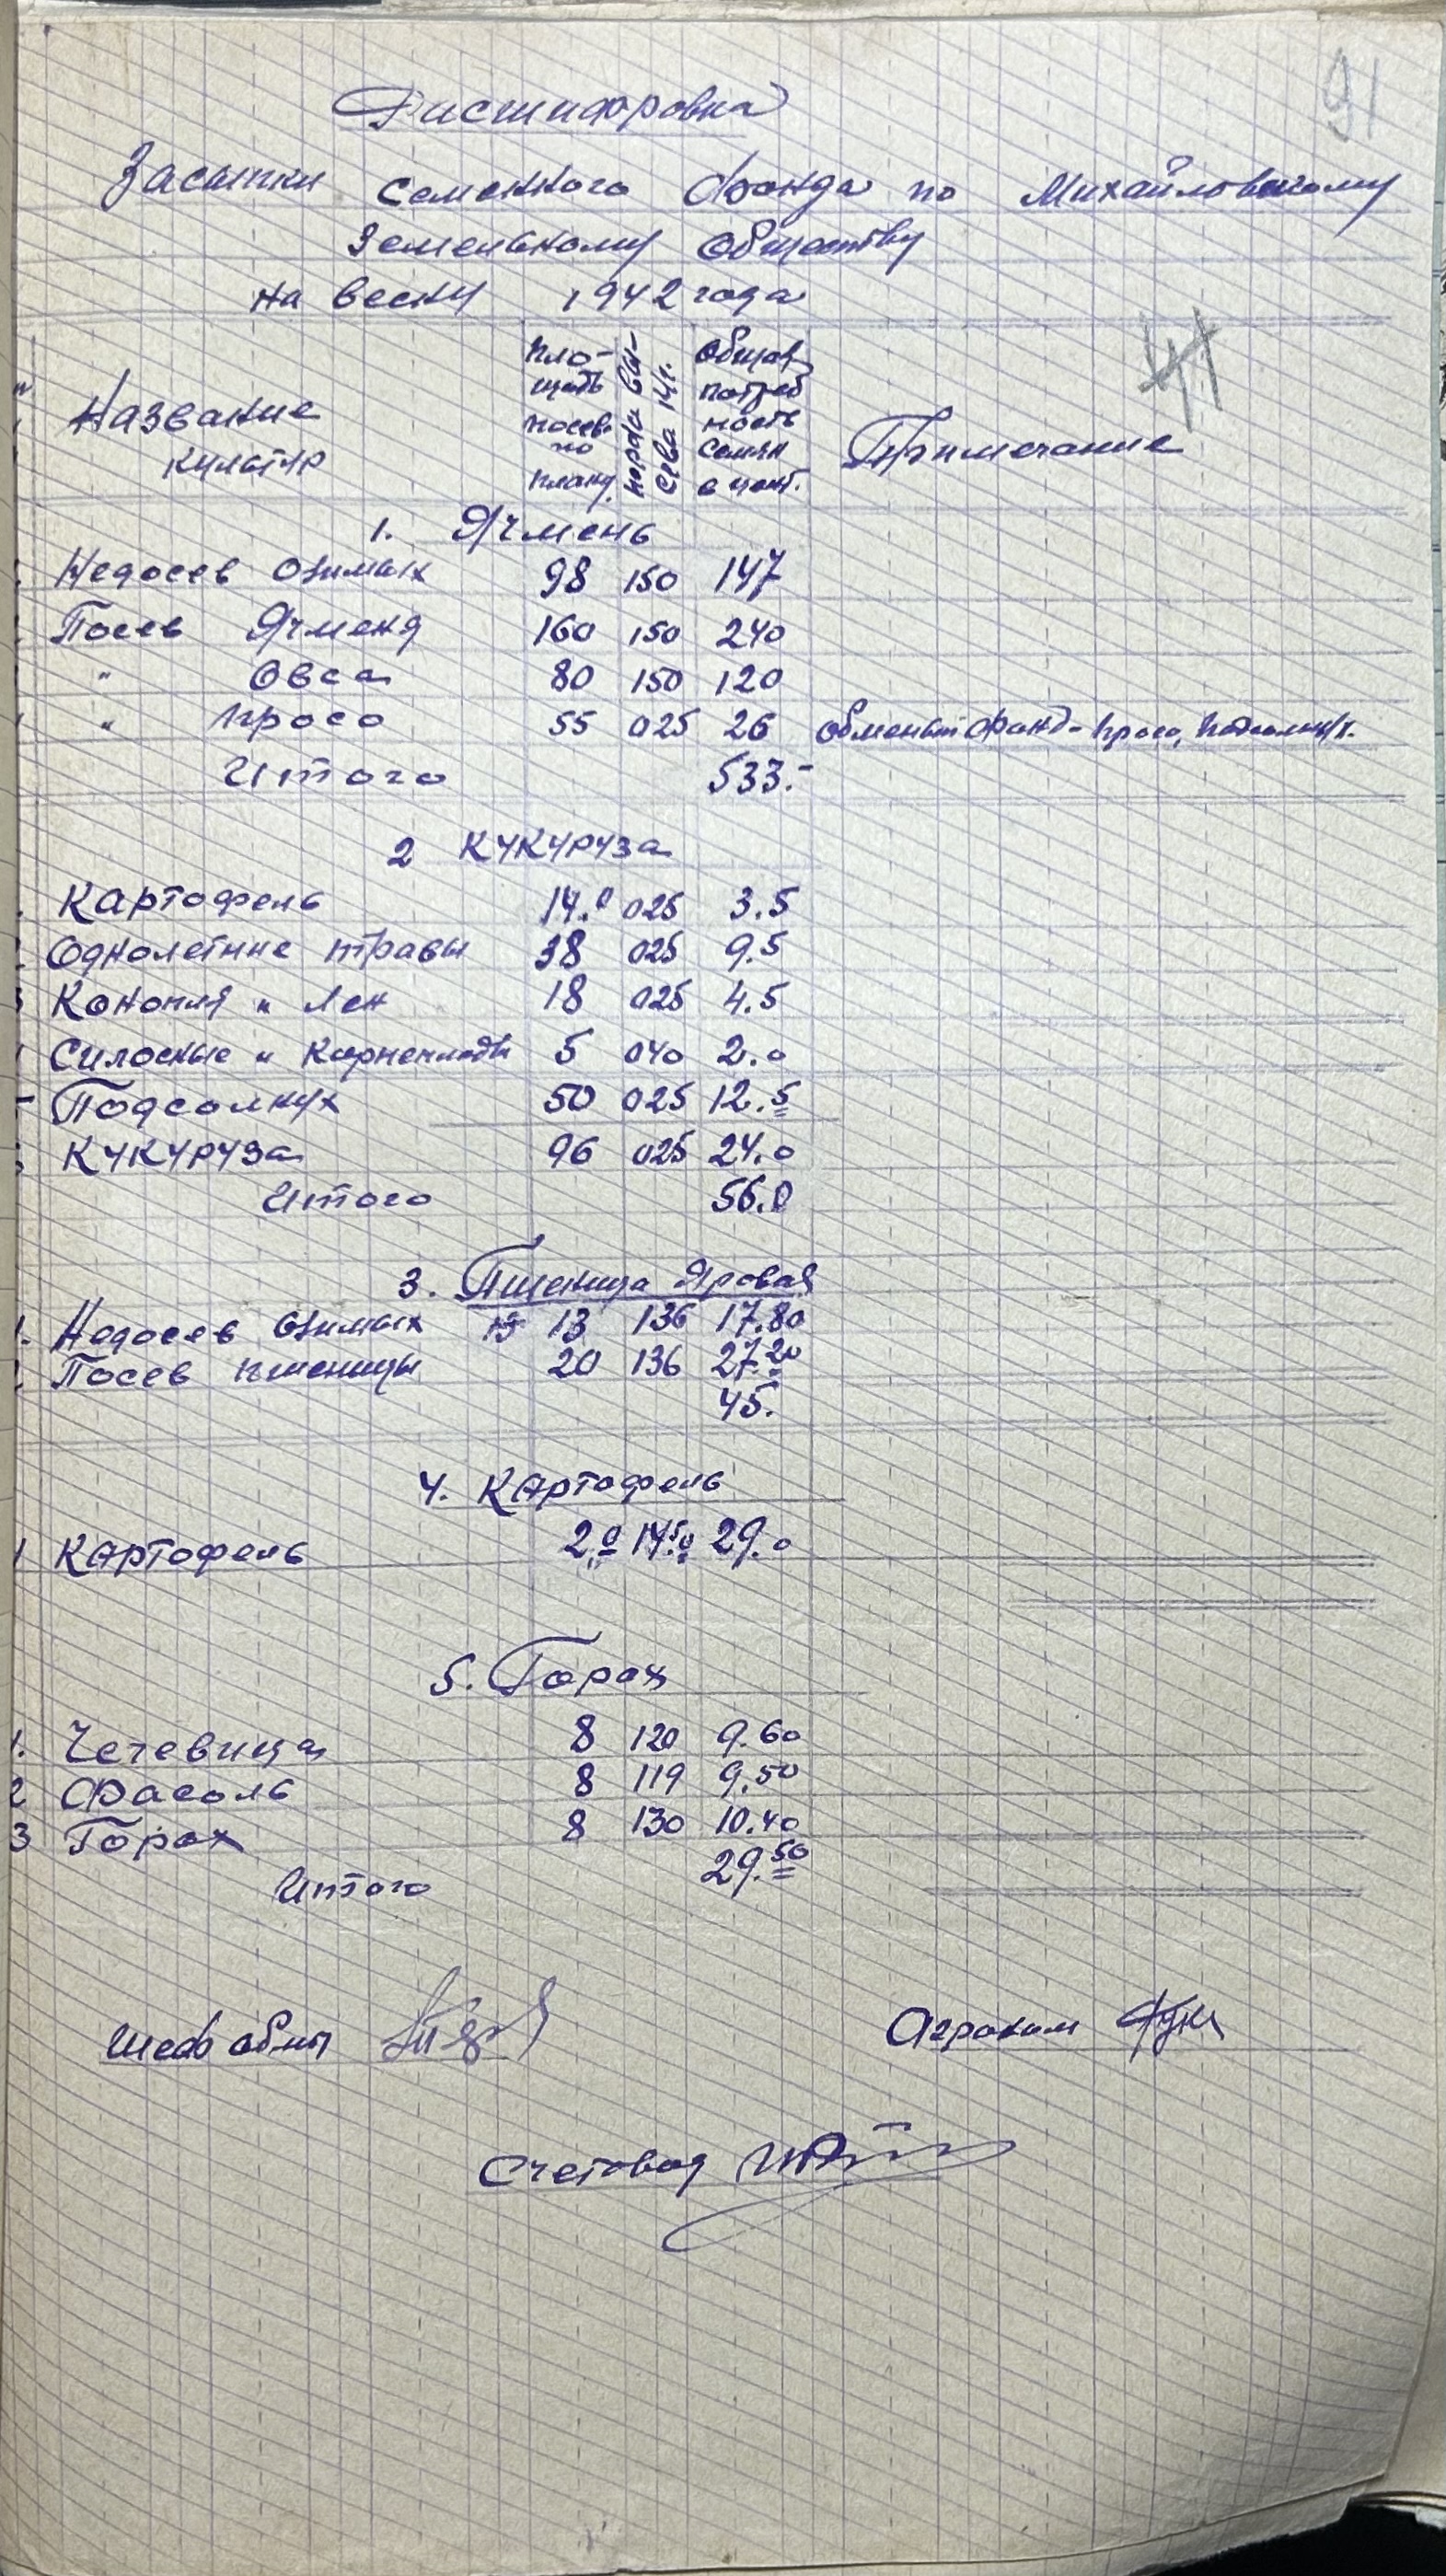 91
Расшифровка
Засыпки семенного фонда по Михайловскому
Земельному Обществу
на весну 1942 года
41
Название культур | Пло-щадь посев. по плану. | Норма вы-сева 1 га. | Общая потреб ность семян в цент. | Примечание
1. Ячмень
Недосев озимых 98 150 147
Посев Ячменя 160 150 240
" Овса 80 150 120
" просо 55 025 26 обменный фонд - просо, подсолнух.
Итого 533.-
2 Кукуруза
Картофель 14.0 025 3.5
Однолетние травы 38 025 9.5
Конопля и Лен 18 025 4.5
Силосные и Корнеплоды 5 040 2.0
Подсолнух 50 025 12.5
Кукуруза 96 025 24.0
Итого 56.0
3. Пшеница Яровая
1. Недосев озимых 13 136 17.80
Посев пшеницы 20 136 27.20
45.
4. Картофель
1 Картофель 2.0 14.50 29.0
5. Горох
1. Чечевица 8 120 9.60
2 Фасоль 8 119 9.50
3 Горох 8 130 10.40
Итого 29.50
Шеф общины
Агроном
Счетовод